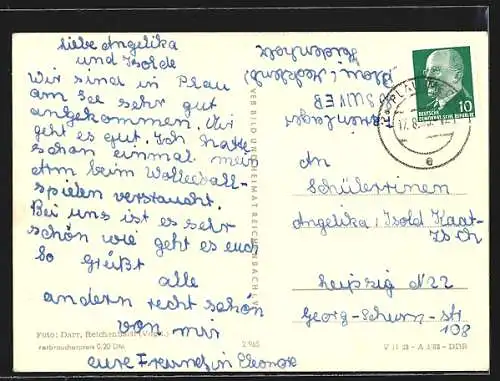 liebe Angelika
und Isolde
Wir sind in Plau
am See sehr gut
angekommen. Mir
geht es gut. Ich hatte
schon einmal mein
Arm beim Wolleeball-
spielen verstaucht.
Bei uns ist es sehr
schön wie geht es euch
So Grüßt
alle
andern recht schön
von mir
eure Freundin Eleonore
Foto: Darr, Reichenbach (Vogtl.)
Verbraucherpreis 0,20 DM
2 965
VEB BILD UND HEIMAT REICHENBACH I. V.
Ferienlager
DEUTSCHE
DEMOKRATISCHE REPUBLIK
10
PLAU
17.8.
e
An
Schülerinen
Angelika, Isold Kaat-
Leipzig N22
Georg-Schum-str
108
V 11 28 - A 1/62 - DDR